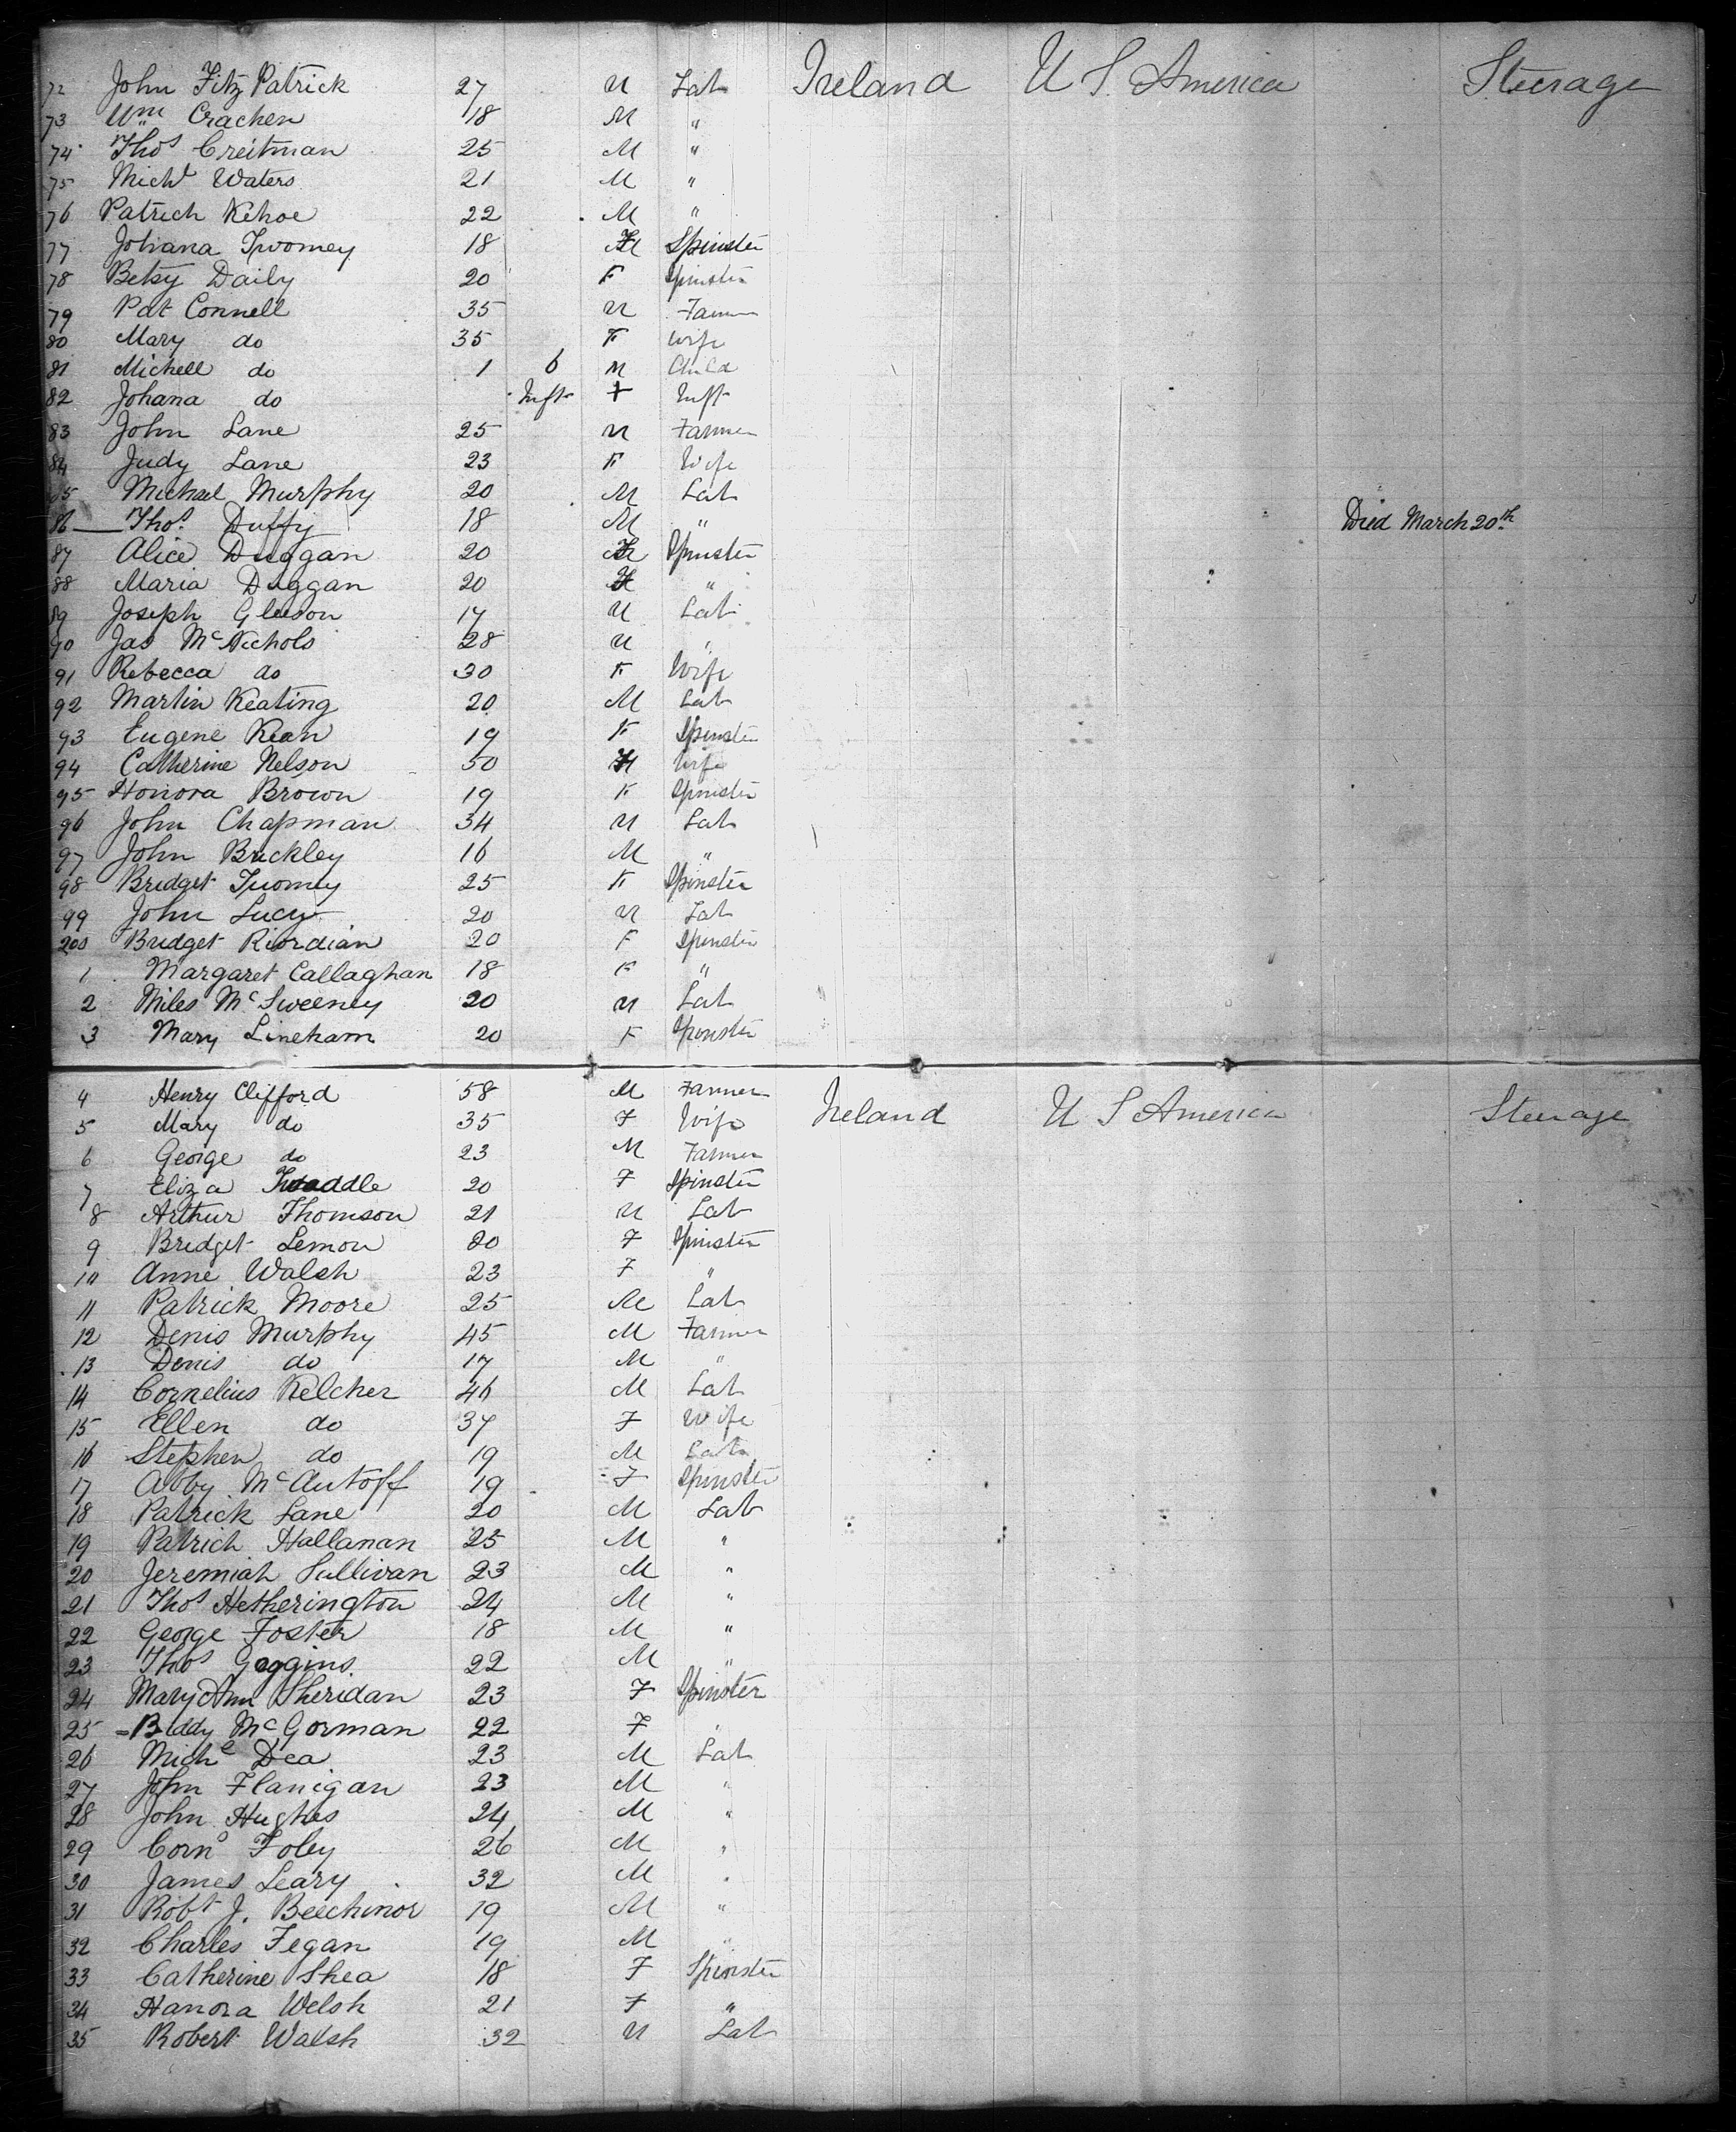 72 John Fitz Patrick 27 M Lab Ireland U S. America Steerage
73 Wm Crachen 18 M "
74 Thos Creitman 25 M "
75 Michl Waters 21 M "
76 Patrich Kehoe 22 M "
77 Johana Twomey 18 F Spinster
78 Betsy Daily 20 F Spinster
79 Pat Connell 35 M Farmer
80 Mary do 35 F Wife
81 Michell do 1 6 M Child
82 Johana do Inft + Inft
83 John Lane 25 M Farmer
84 Judy Lane 23 F Wife
85 Michael Murphy 20 M Lab
86 Thos. Duffy 18 M " Died March 20th
87 Alice Duggan 20 F Spinster
88 Maria Duggan 20 F "
89 Joseph Gleeson 17 M Lab
90 Jas McNichols 28 M "
91 Rebecca do 30 F Wife
92 Martin Keating 20 M Lab
93 Eugene Kean 19 F Spinster
94 Catherine Nelson 50 F Wife
95 Honora Brown 19 F Spinster
96 John Chapman 34 M Lab
97 John Brickley 16 M "
98 Bridget Tuomey 25 F Spinster
99 John Lucy 20 M Lab
200 Bridget Riordian 20 F Spinster
1 Margaret Callaghan 18 F "
2 Miles McSweeney 20 M Lab
3 Mary Lineham 20 F Spinster
4 Henry Clifford 58 M Farmer Ireland U S America Steerage
5 Mary do 35 F Wife
6 George do 23 M Farmer
7 Eliza Twaddle 20 F Spinster
8 Arthur Thomson 21 M Lab
9 Bridget Lemon 20 F Spinster
10 Anne Walsh 23 F "
11 Patrick Moore 25 M Lab
12 Denis Murphy 45 M Farmer
13 Denis do 17 M "
14 Cornelius Kelcher 46 M Lab
15 Ellen do 37 F Wife
16 Stephen do 19 M Lab
17 Abby McAutoff 19 F Spinster
18 Patrick Lane 20 M Lab
19 Patrich Hallanan 25 M "
20 Jeremiah Sullivan 23 M "
21 Thos Hetherington 24 M "
22 George Foster 18 M "
23 Thos Goggins 22 M "
24 Mary Ann Sheridan 23 F Spinster
25 Biddy McGorman 22 F "
26 Michl Dea 23 M Lab
27 John Flanigan 23 M "
28 John Hughes 24 M "
29 Corns Foley 26 M "
30 James Leary 32 M "
31 Robt J. Beechinor 19 M "
32 Charles Fegan 19 M "
33 Catherine Shea 18 F Spinster
34 Hanora Welsh 21 F "
35 Robert Walsh 32 M Lab